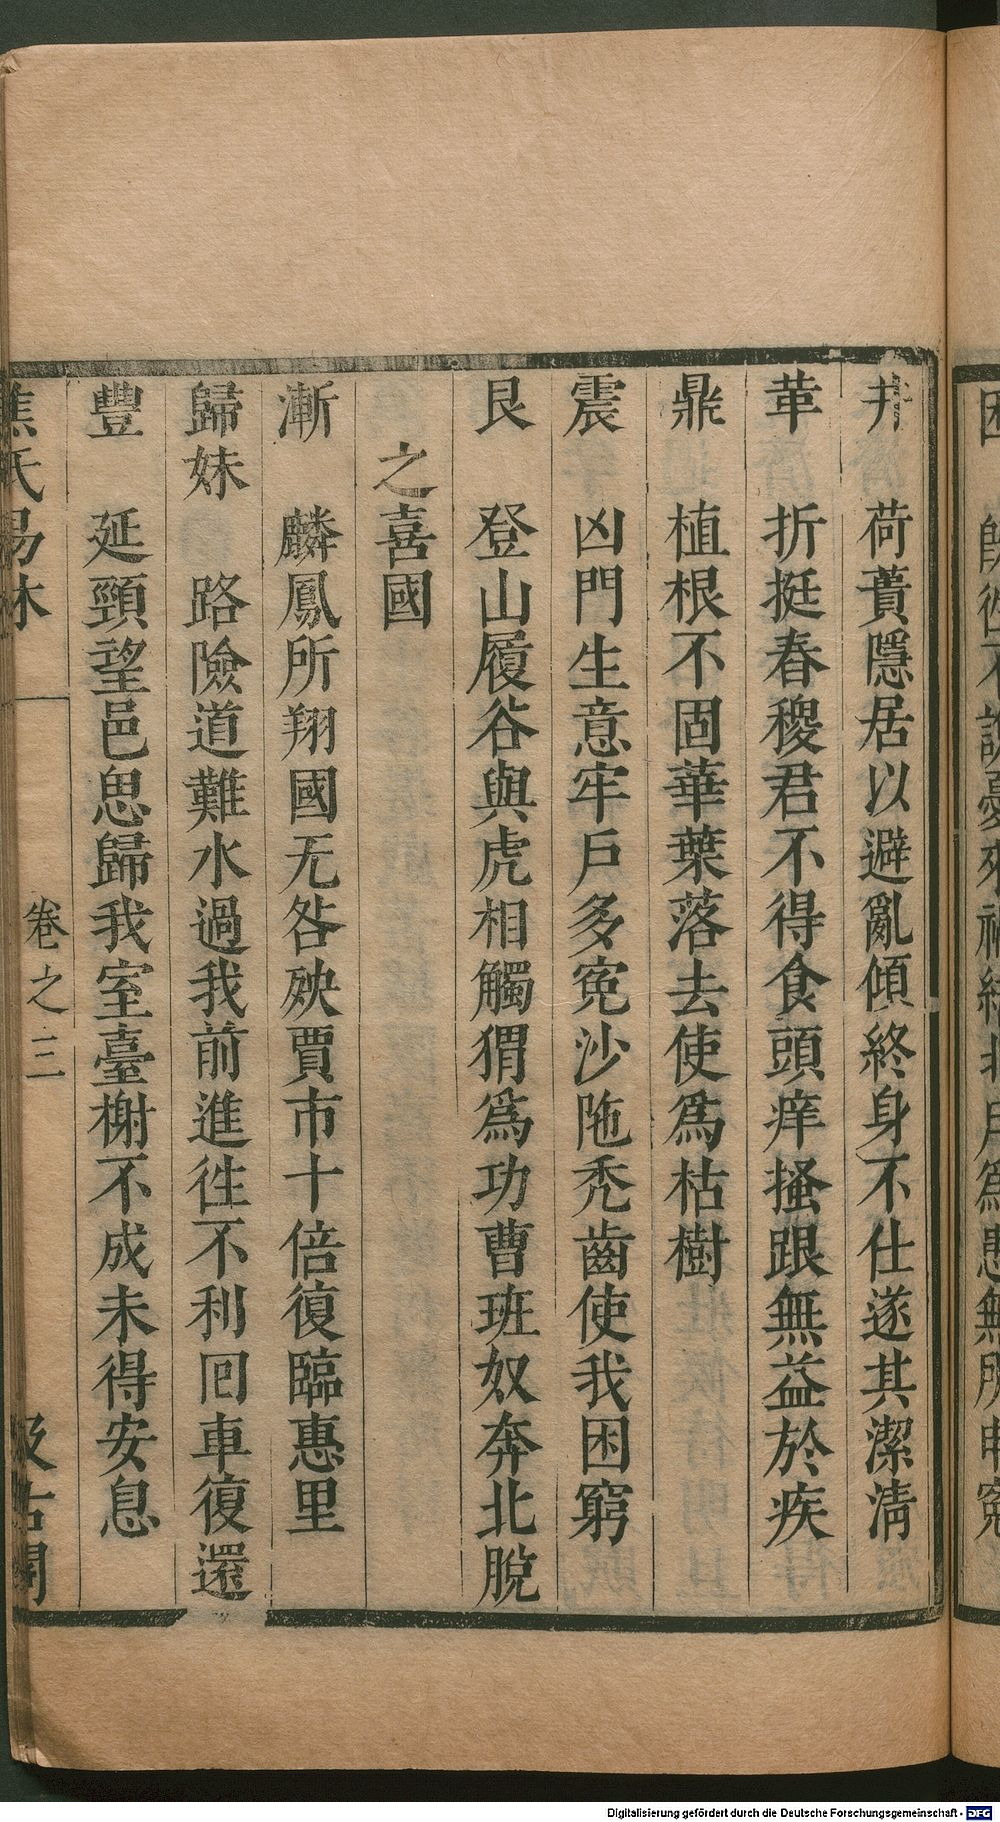 井　荷蕢隱居以避亂傾終身不仕遂其潔淸
革　折挺春稷君不得食頭痒搔跟無益於疾
鼎　植根不固華葉落去使爲枯樹
震　凶門生意牢戶多寃沙陁禿齒使我困窮
艮　登山履谷與虎相觸猬爲功曹班奴奔北脫
之喜國
漸　麟鳳所翔國无咎殃賈市十倍復臨惠里
歸妹　路險道難水過我前進徃不利囘車復還
豐　延頸望邑思歸我室臺榭不成未得安息
焦氏易林　卷之三　汲古閣
Digitalisierung gefördert durch die Deutsche Forschungsgemeinschaft - DFG